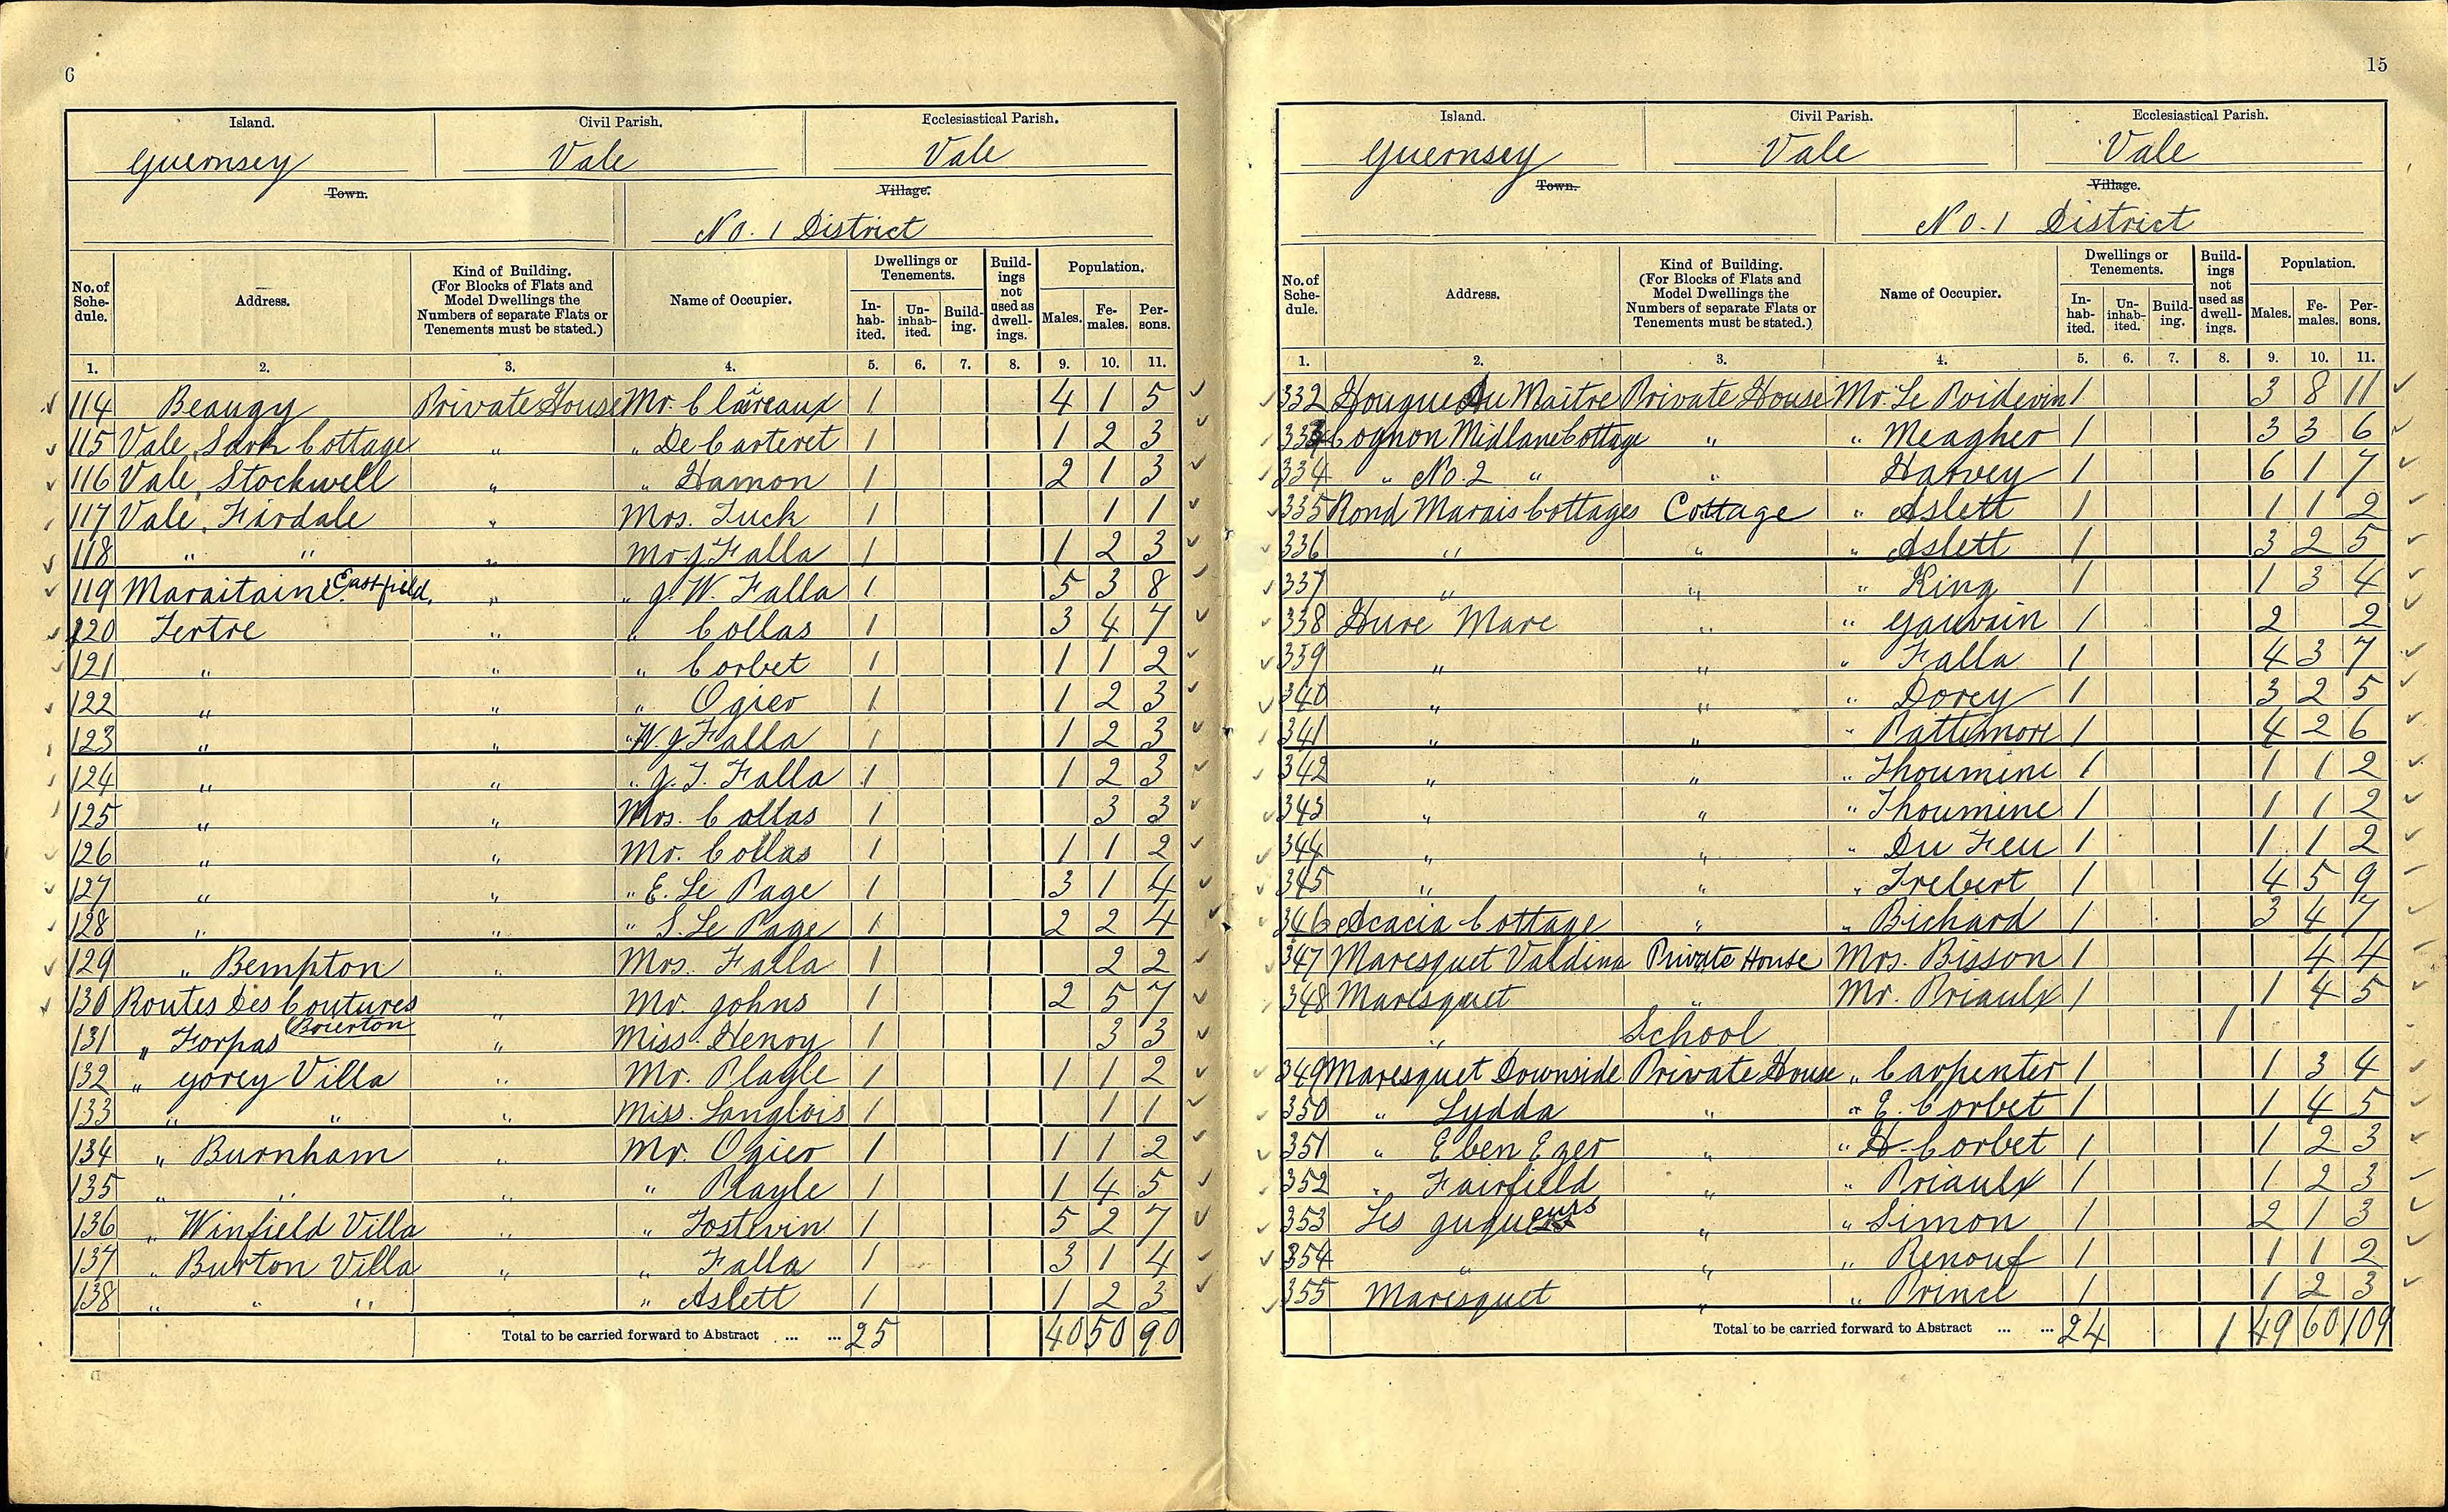 6
Island. Civil Parish. Ecclesiastical Parish.
Guernsey Vale Vale
Town. Village.
No. 1 District
No. of Schedule. Address. Kind of Building. (For Blocks of Flats and Model Dwellings the Numbers of separate Flats or Tenements must be stated.) Name of Occupier. Dwellings or Tenements. Inhabited. Uninhabited. Building. Buildings not used as dwellings. Population. Males. Females. Persons.
1. 2. 3. 4. 5. 6. 7. 8. 9. 10. 11.
114 Beaugy Private House Mr. 1 4 1 5
115 Vale, Sark Cottage " " De Carteret 1 1 2 3
116 Vale, Stockwell " " Hamon 1 2 1 3
117 Vale, Firdale " Mrs. Tuck 1 1 1
118 " " " Mr J Falla 1 1 2 3
119 Maraitaine Eastfield. " " J. W. Falla 1 5 3 8
120 Tertre " " Collas 1 3 4 7
121 " " " Corbet 1 1 1 2
122 " " " Ogier 1 1 2 3
123 " " " W. J Falla 1 1 2 3
124 " " " J. T. Falla 1 1 2 3
125 " " Mrs. Collas 1 3 3
126 " " Mr. Collas 1 1 1 2
127 " " " E. Le Page 1 3 1 4
128 " " " S. Le Page 1 2 2 4
129 " Bempton " Mrs. Falla 1 2 2
130 Routes Des Coutures " Mr. Johns 1 2 5 7
131 " Forpas Brierton " Miss. Henry 1 3 3
132 " Gorey Villa " Mr. Playle 1 1 1 2
133 " " " Miss. Langlois 1 1 1
134 " Burnham " Mr. Ogier 1 1 1 2
135 " " " " Playle 1 1 4 5
136 " Winfield Villa " " Tostevin 1 5 2 7
137 " Burton Villa " " Falla 1 3 1 4
138 " " " " Aslett 1 1 2 3
Total to be carried forward to Abstract ... ... 25 40 50 90
15
Island. Civil Parish. Ecclesiastical Parish.
Guernsey Vale Vale
Town. Village.
No. 1 District
No. of Schedule. Address. Kind of Building. (For Blocks of Flats and Model Dwellings the Numbers of separate Flats or Tenements must be stated.) Name of Occupier. Dwellings or Tenements. Inhabited. Uninhabited. Building. Buildings not used as dwellings. Population. Males. Females. Persons.
1. 2. 3. 4. 5. 6. 7. 8. 9. 10. 11.
332 Hougue Du Maitre Private House Mr. Le Poidevin 1 3 8 11
333 Cognon Midlane Cottage " " Meagher 1 3 3 6
334 " No. 2 " " Harvey 1 6 1 7
335 Rond Marais Cottages Cottage " Aslett 1 1 1 2
336 " " " Aslett 1 3 2 5
337 " " " King 1 1 3 4
338 Hure Mare " " Gauvain 1 2 2
339 " " " Falla 1 4 3 7
340 " " " Dorey 1 3 2 5
341 " " " Pattimore 1 4 2 6
342 " " " Thoumine 1 1 1 2
343 " " " Thoumine 1 1 1 2
344 " " " Du Feu 1 1 1 2
345 " " " Trebert 1 4 5 9
346 Acacia Cottage " " Bichard 1 3 4 7
347 Maresquet Valdina Private House Mrs. Bisson 1 4 4
348 Maresquet " Mr. Priaulx 1 1 4 5
" School 1
349 Maresquet Downside Private House " Carpenter 1 1 3 4
350 " Lydda " " E. Corbet 1 1 4 5
351 " Eben Ezer " " H. Corbet 1 1 2 3
352 " Fairfield " " Priaulx 1 1 2 3
353 Les " " Simon 1 2 1 3
354 " " " Renouf 1 1 1 2
355 Maresquet " " Prince 1 1 2 3
Total to be carried forward to Abstract ... ... 24 1 49 60 109